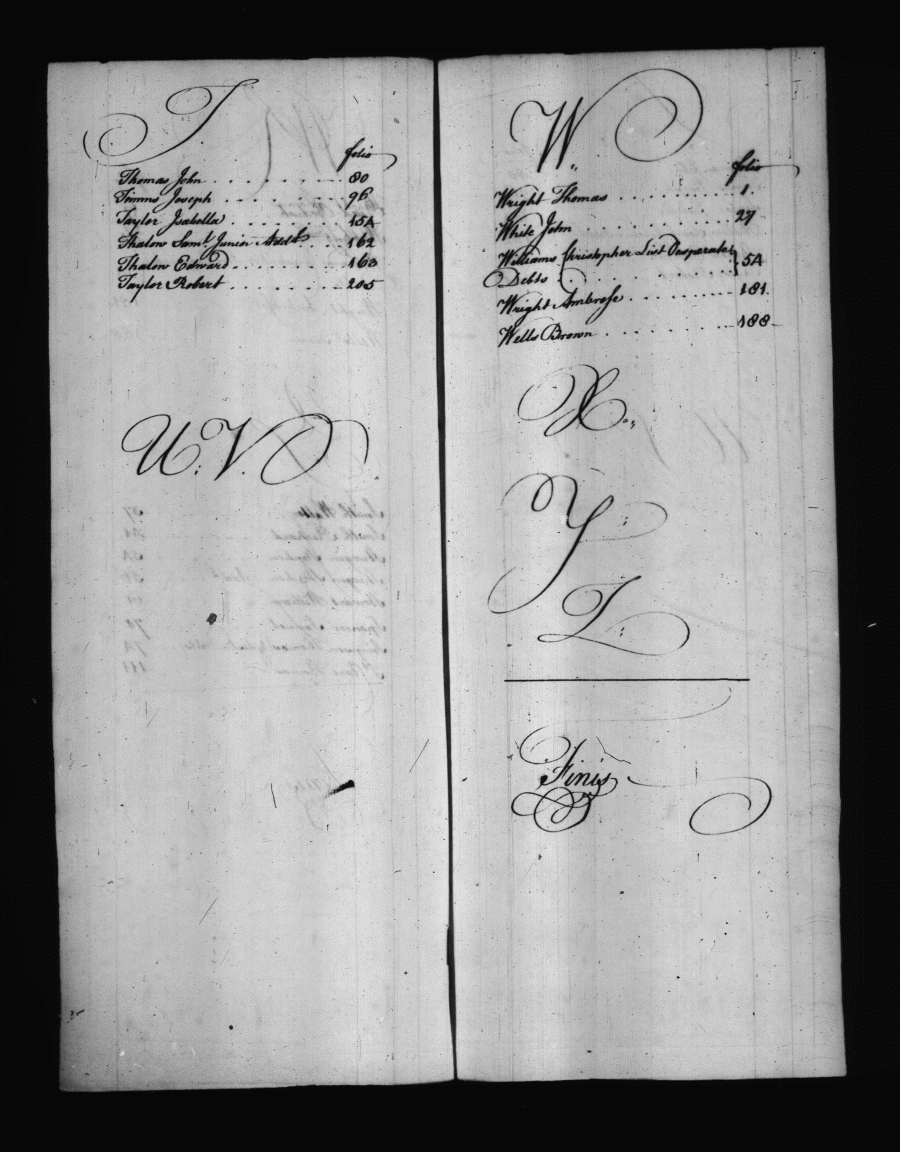 T
folio
Thomas John 80
Timms Joseph 96
Taylor Isabella 154
Thalow Saml. Junior Addl. 162
Thalow Edward 163
Taylor Robert 205
U. V.
W.
folio
Wright Thomas 1.
White John 27
Williams Christopher List Desparate
Debts 54
Wright Ambrose 181.
Wells Brown 188
X.
Y
Z.
Finis